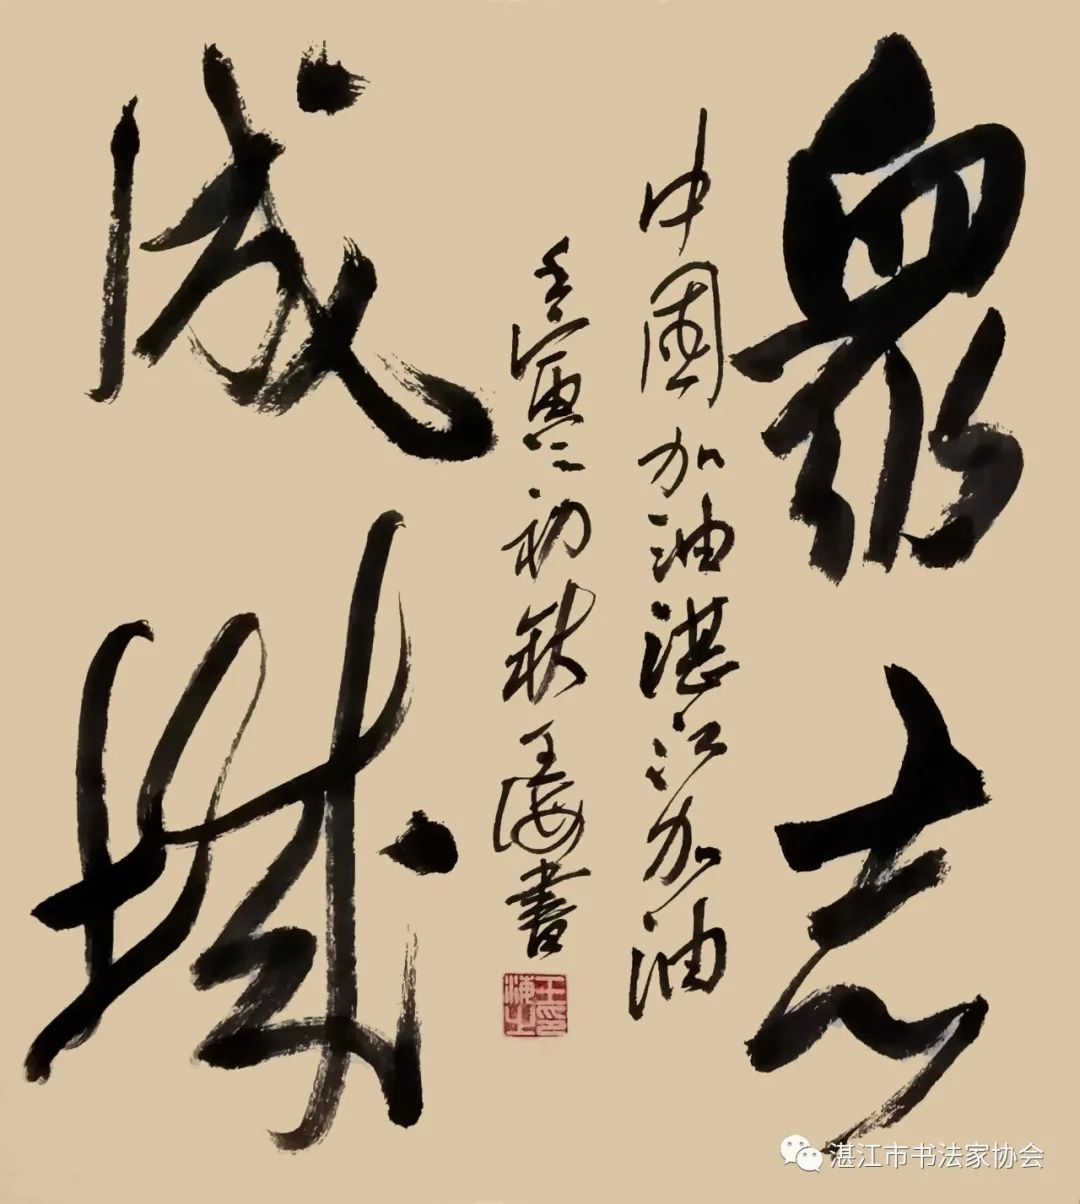 眾志
中國加油湛江加油
壬寅初秋王海書
成城
王海之印
湛江市书法家协会